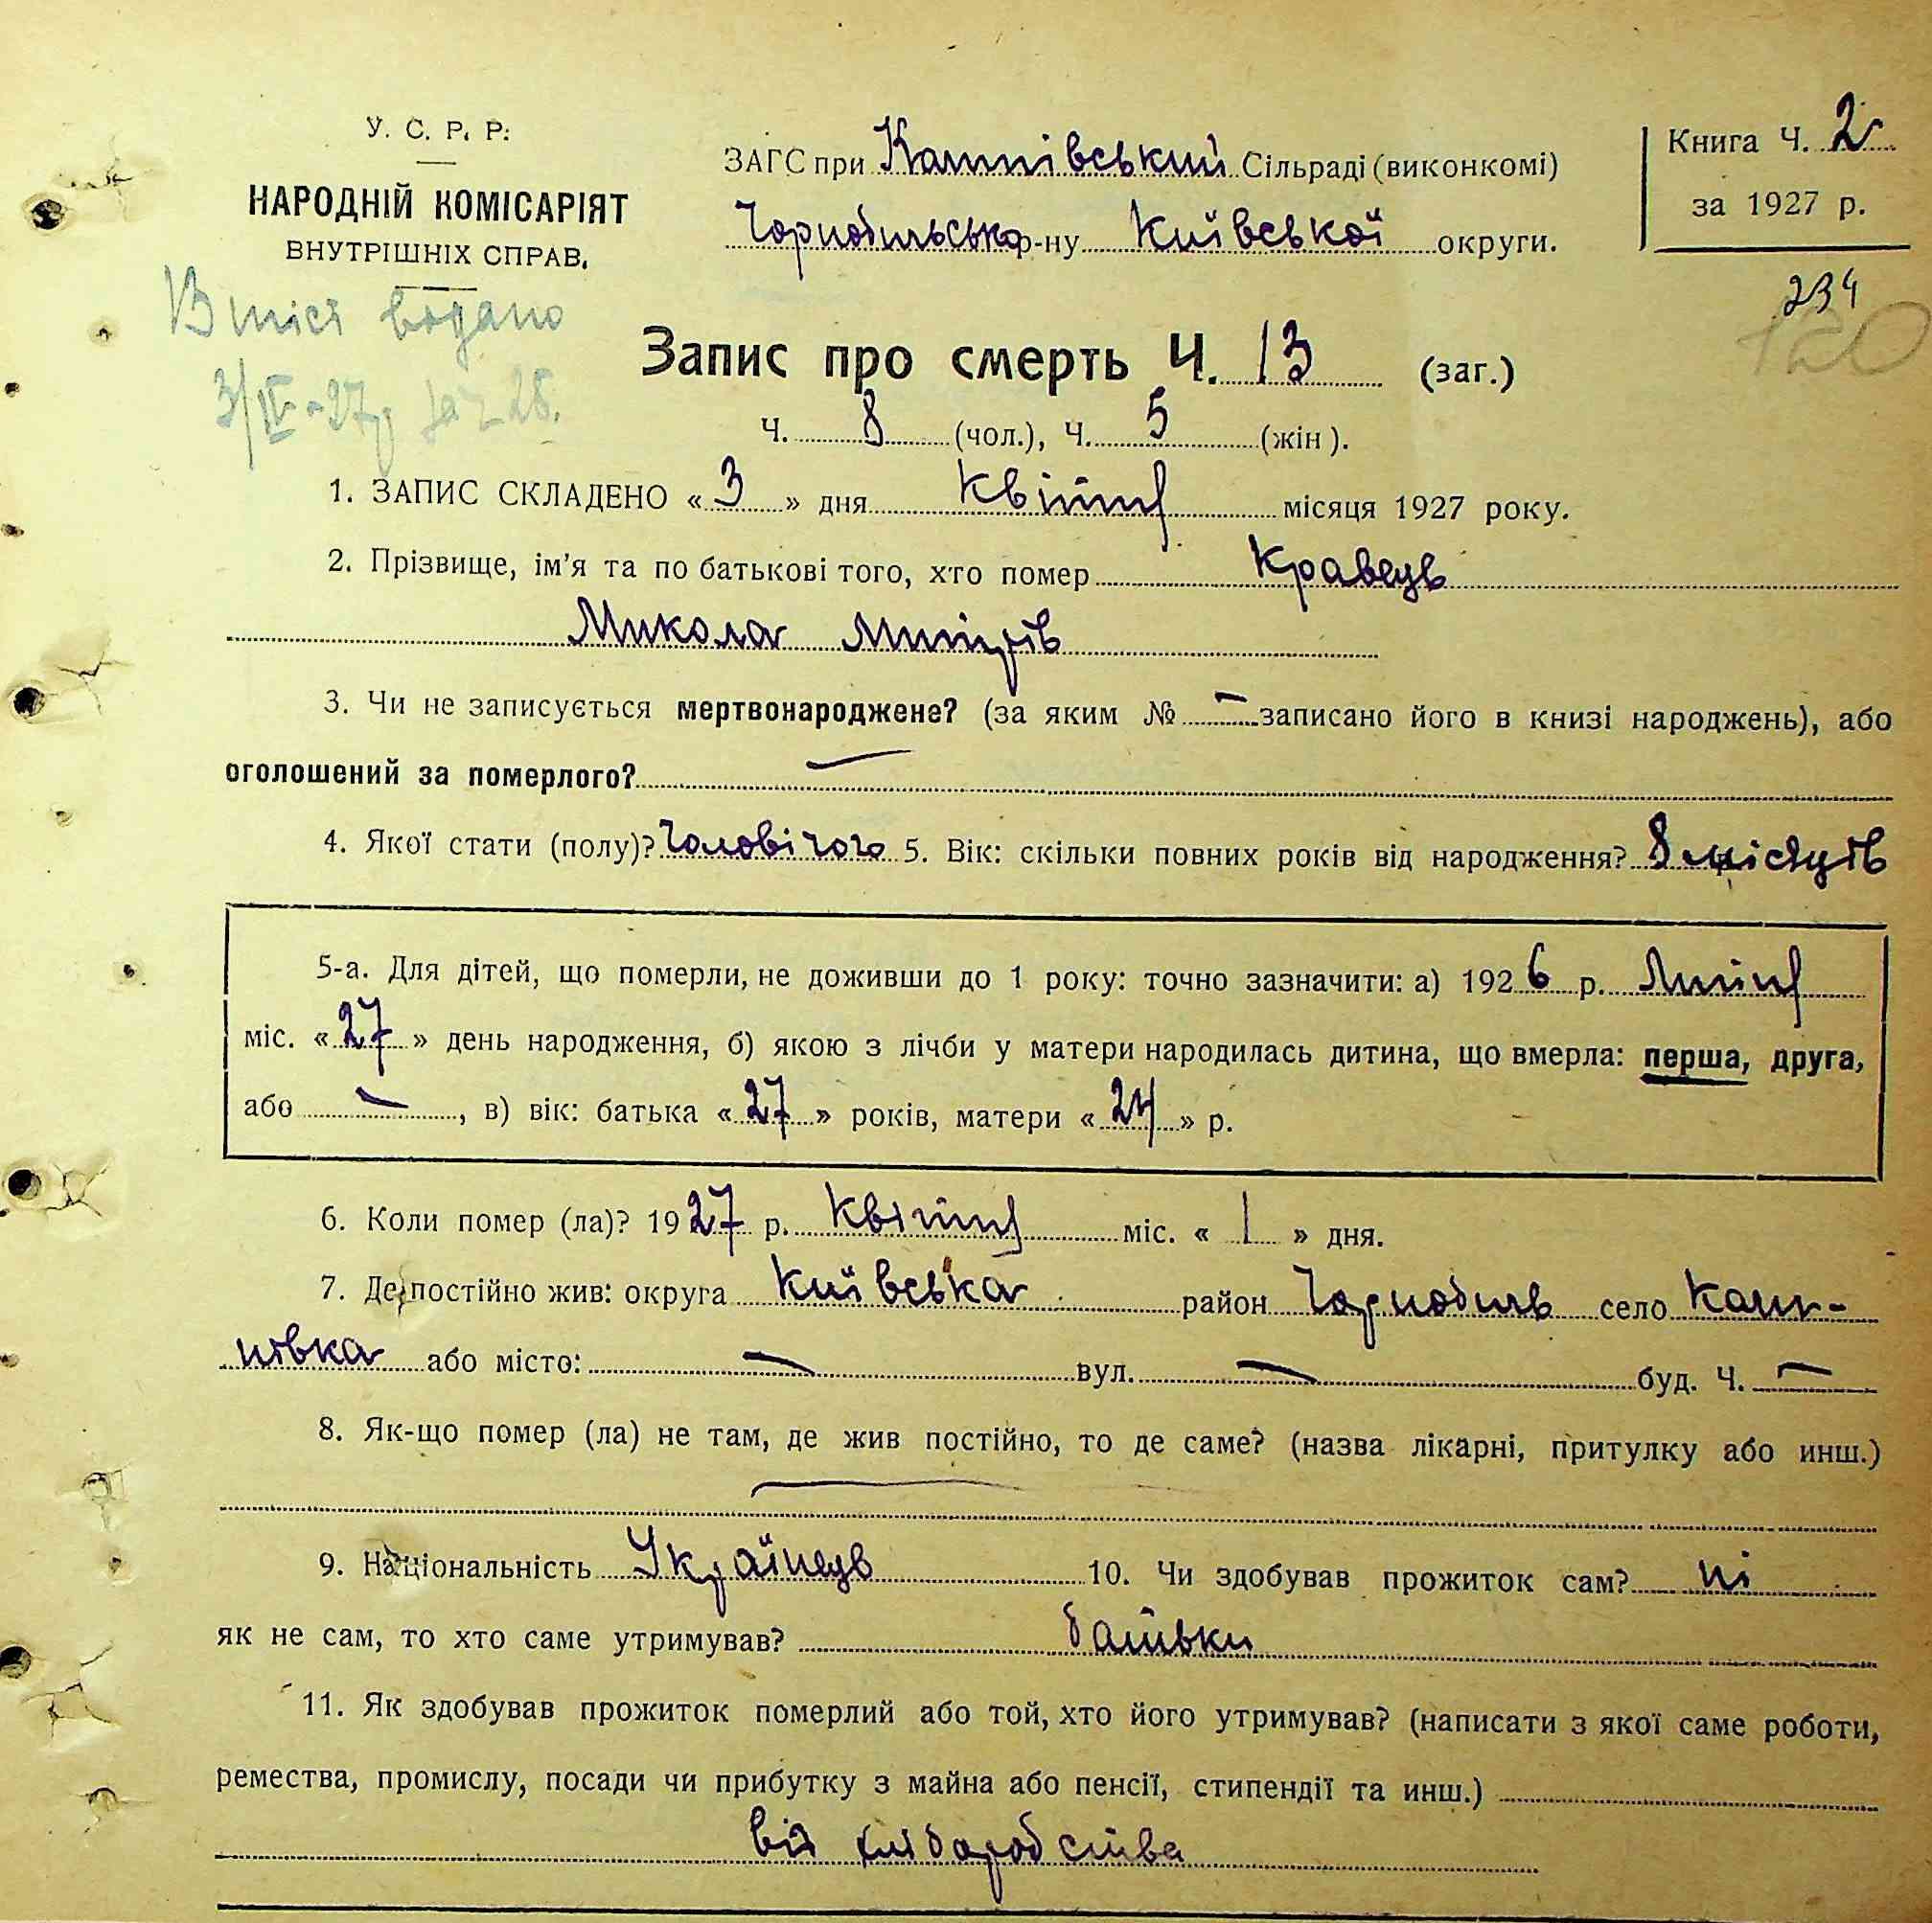 У. С. Р. Р.
НАРОДНІЙ КОМІСАРІЯТ
ВНУТРІШНІХ СПРАВ.
ЗАГС при Сільраді (виконкомі)
Чорнобильсько р-ну Київської округи.
Книга Ч. 2
за 1927 р.
234
120
видано
3/IV-27р
Запис про смерть Ч. 13 (заг.)
Ч. 8 (чол.), Ч. 5 (жін).
1. ЗАПИС СКЛАДЕНО «3» дня Квітня місяця 1927 року.
2. Прізвище, ім'я та по батькові того, хто помер Кравець
Микола Митрів
3. Чи не записується мертвонароджене? (за яким № — записано його в книзі народжень), або
оголошений за померлого? —
4. Якої стати (полу)? Чоловічого 5. Вік: скільки повних років від народження? 8 місяців
5-а. Для дітей, що померли, не доживши до 1 року: точно зазначити: а) 1926 р. Липня
міс. «27» день народження, б) якою з лічби у матери народилась дитина, що вмерла: перша, друга,
або —, в) вік: батька «27» років, матери «24» р.
6. Коли помер (ла)? 1927 р. Квітня міс. «1» дня.
7. Де постійно жив: округа Київська район Чорнобиль село
або місто: — вул. — буд. Ч. —
8. Як-що помер (ла) не там, де жив постійно, то де саме? (назва лікарні, притулку або инш.)
—
9. Національність Українець 10. Чи здобував прожиток сам? ні
як не сам, то хто саме утримував? батьки
11. Як здобував прожиток померлий або той, хто його утримував? (написати з якої саме роботи,
ремества, промислу, посади чи прибутку з майна або пенсії, стипендії та инш.)
від хліборобства